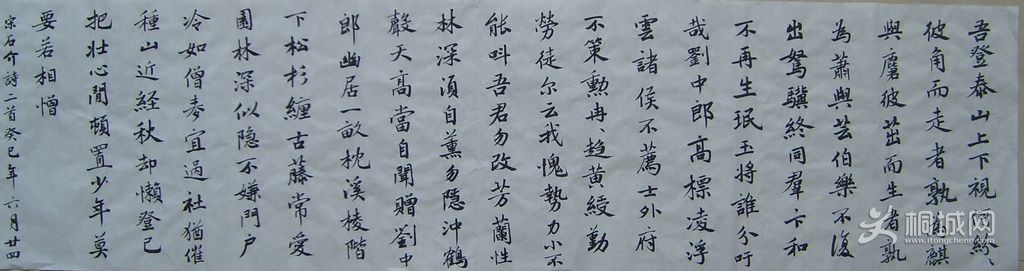 吾登泰山上下視紛、
彼角而走者孰麒
與麏彼茁而生者孰
為蕭與芸伯樂不復
出駑驥終同羣卞和
不再生珉玉將誰分吁
哉劉中郎高標凌浮
雲諸侯不薦士外府
不策勳冉、趍黃綬勤
勞徒尔云我愧勢力小不
能叫吾君勿改芳蘭性
林深須自薰勿隱沖鶴
聲天高當自聞贈劉中
郎幽居一畝枕溪稜階
下松杉纏古藤常愛
園林深似隐不嫌門户
冷如僧麥宜過社猶催
種山近経秋却懶登已
把壯心閒頓置少年莫
要若相憎
宋石介詩二首癸巳年六月廿四
桐城网
www.itongcheng.com